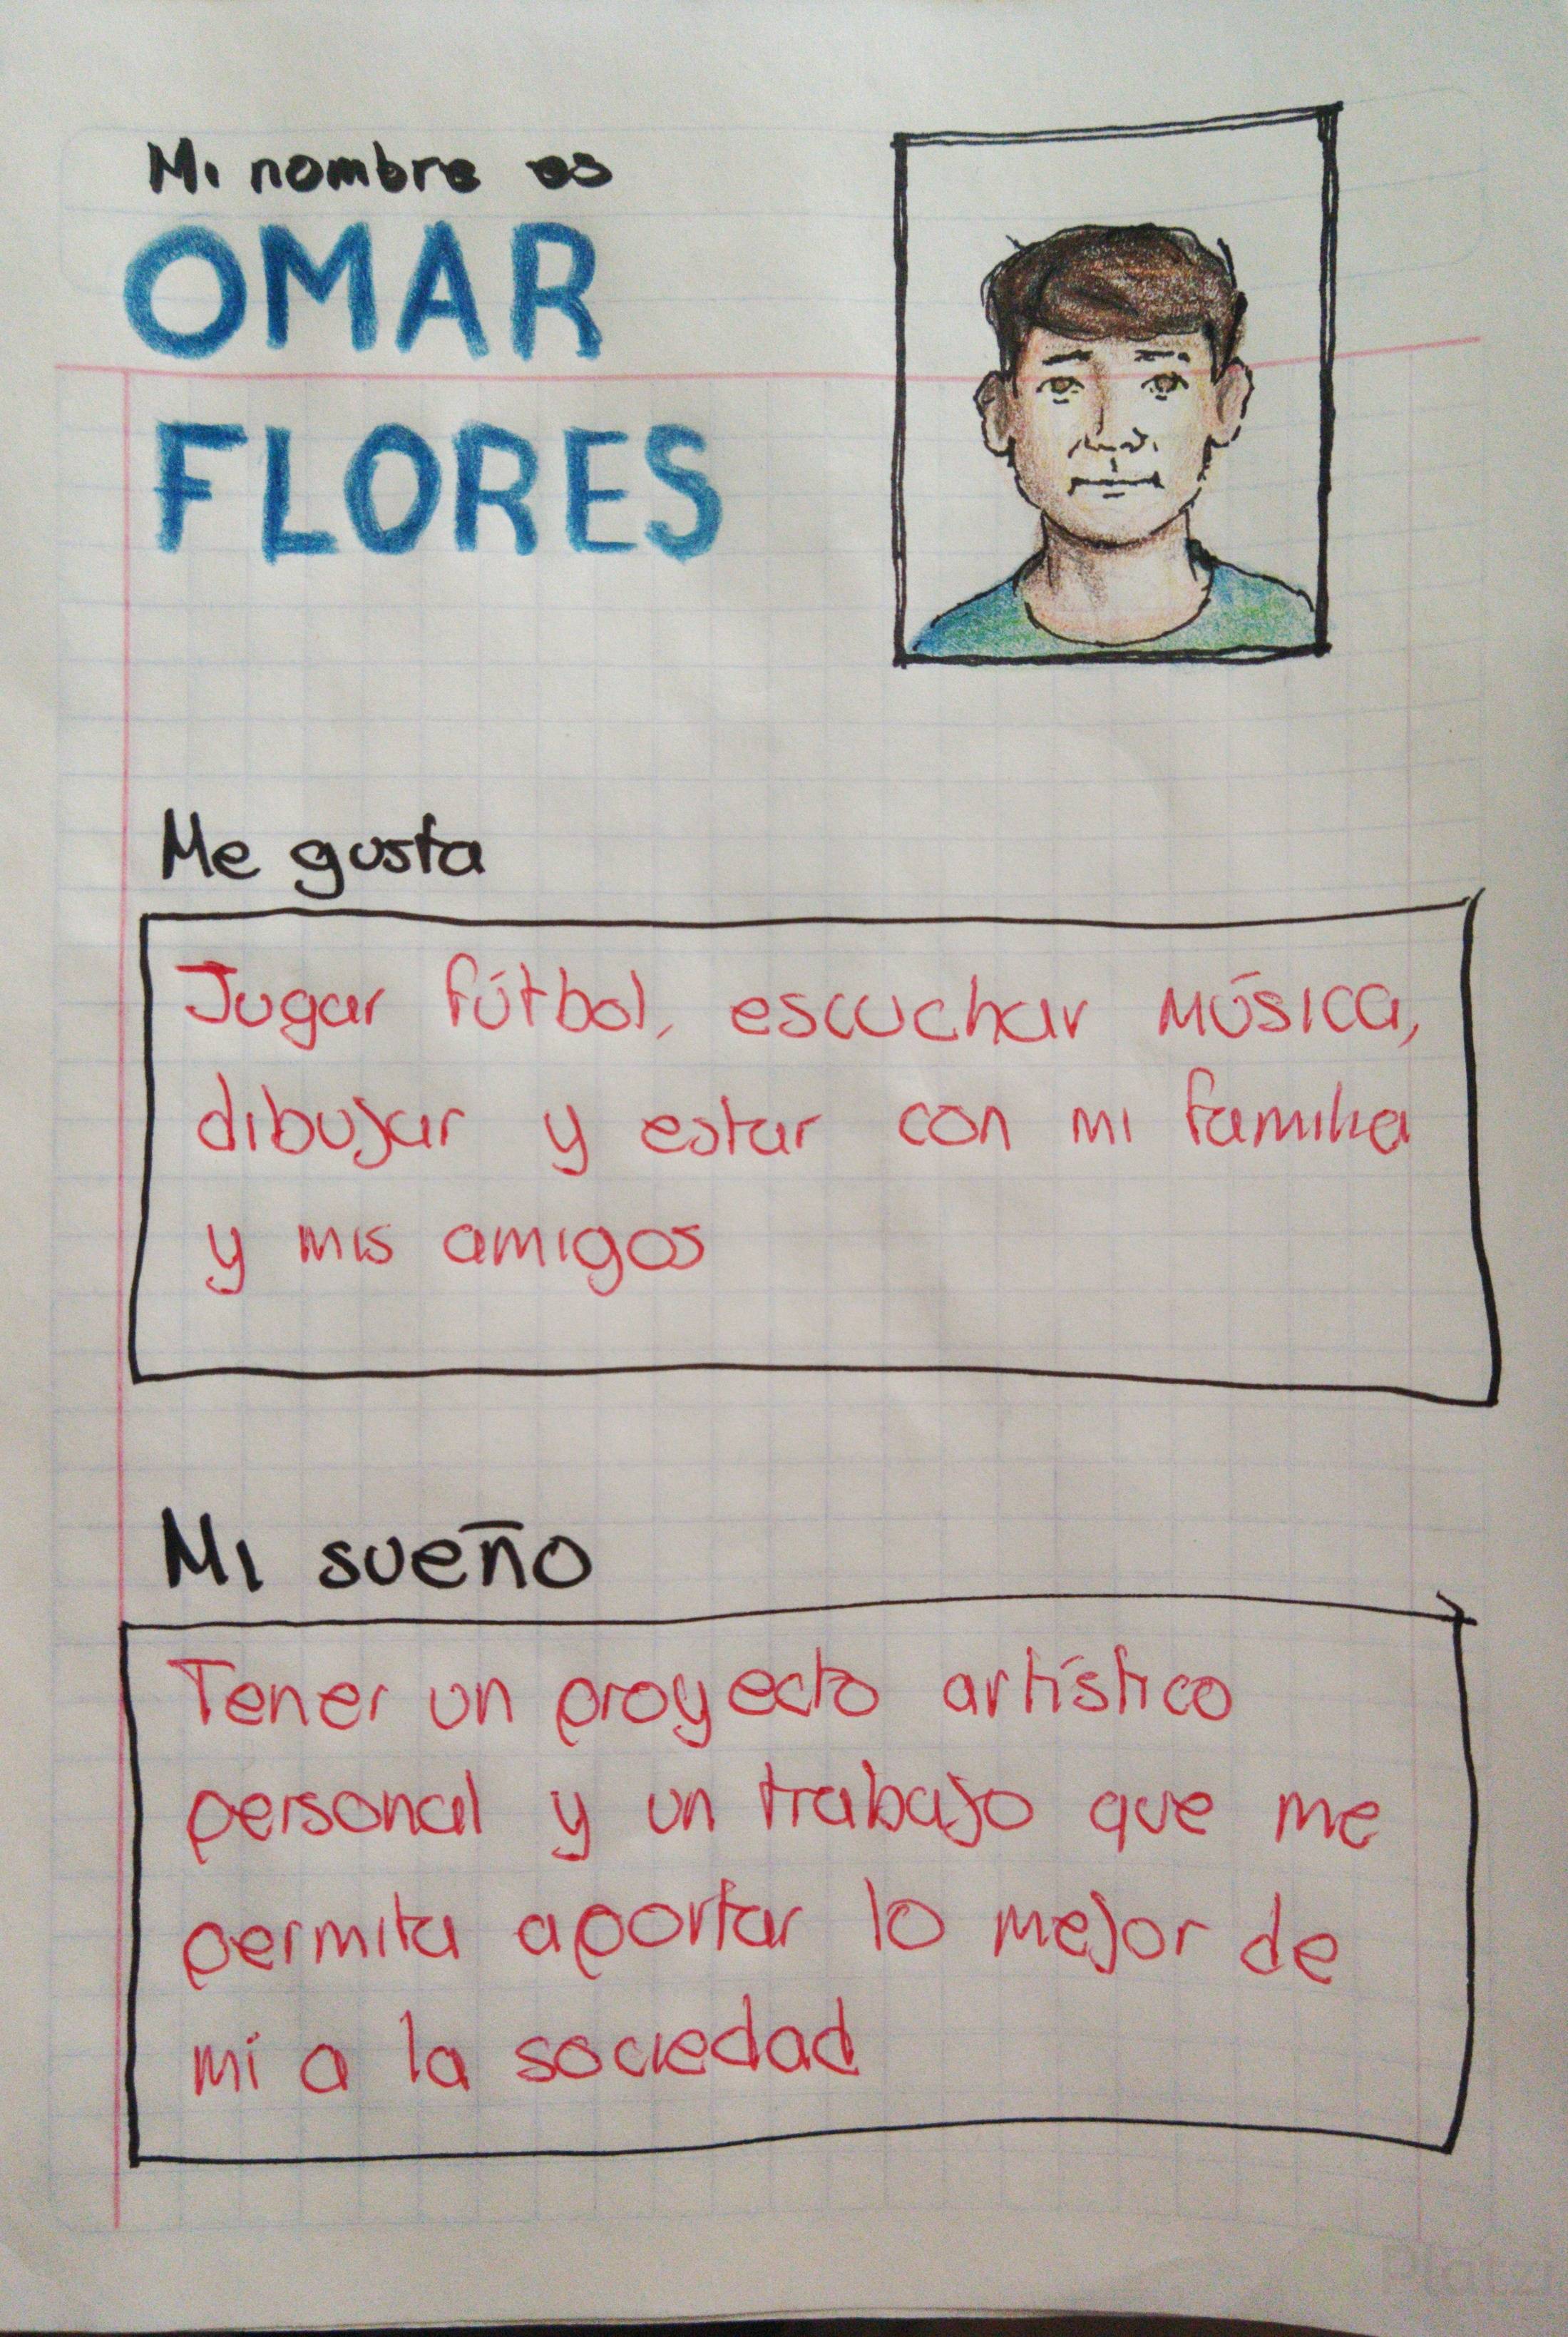 Mi nombre es
OMAR
FLORES
Me gusta
Jugar fútbol, escuchar música,
dibujar y estar con mi familia
y mis amigos
Mi sueño
Tener un proyecto artístico
personal y un trabajo que me
permita aportar lo mejor de
mí a la sociedad
Platzi